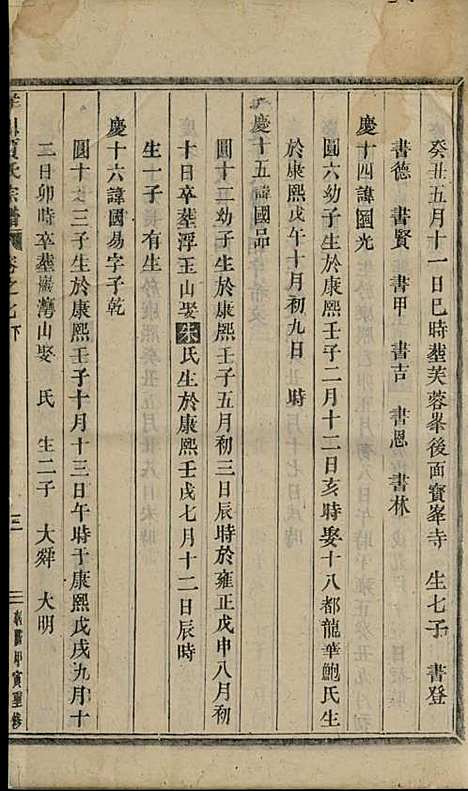 癸丑五月十一日巳時葬芙蓉峯後面寶峯寺 生七子 書登
書德 書賢 書甲 書吉 書恩 書林
慶十四諱國光
圓六幼子生於康熙壬子二月十二日亥時娶十八都龍華鮑氏生
於康熙戊午十月初九日 時
慶十五諱國品
圓十二幼子生於康熙壬子五月初三日辰時於雍正戊申八月初
十日卒葬浮玉山娶朱氏生於康熙壬戌七月十二日辰時
生一子 有生
慶十六諱國易字子乾
圓十之三子生於康熙壬子十月十三日午時于康熙戊戌九月十
二日卯時卒葬巖灣山娶 氏 生二子 大舜 大明
氏宗譜 卷之七下 三 乾隆甲寅重修